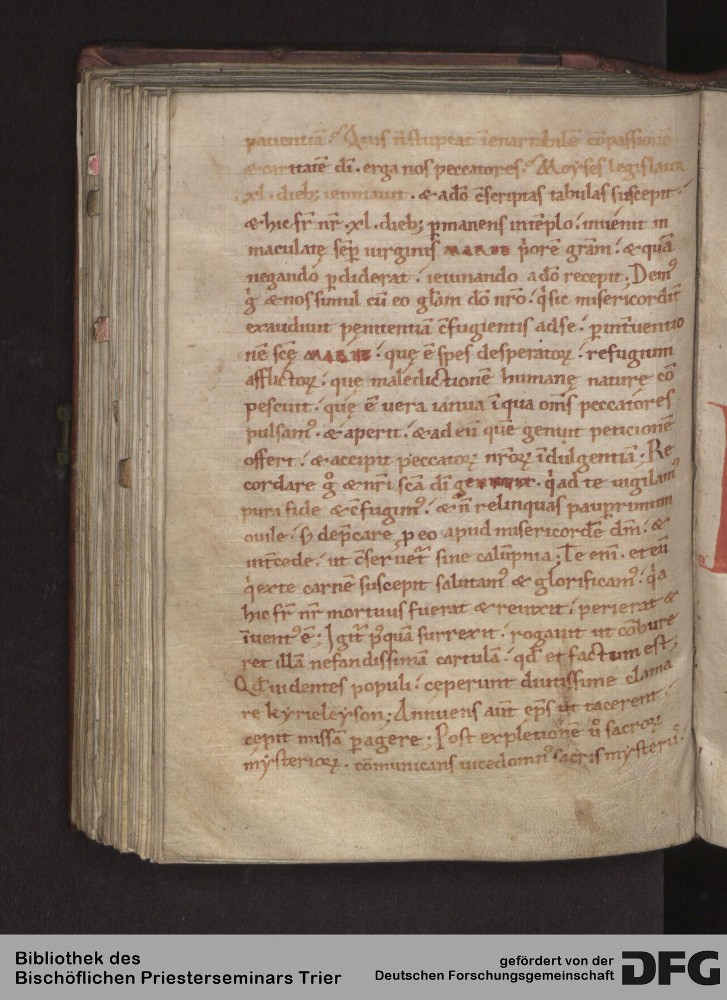 pauentiā. Quis n̄ stupeat ienarrabilē cōpassionē
& caritatē dī. erga nos peccatores. Moyses legislator
.xl. dieb; ieiunauit. & a dō c̄scriptas tabulas suscepit.
& hic fr̄ nr̄ .xl. dieb; ꝑmanens in tēplo. inuenit in
maculatę sēp uirginis MARIE p̄orē grām. & quā
negando ꝑdiderat. ieiunando a dō recepit; Demꝰ
g̊ & nos simul cū eo glām dō nr̄o. q̄ sic misericordit̄
exaudiuit pęnitentiā c̄fugientis ad se. ꝑ int̄uentio
nē scę MARIE. quę ē spes desperatoꝝ. refugium
afflictoꝝ. quę maledictionē humanę naturę cō
pescuit. quę ē uera ianua ī qua om̄s peccatores
pulsamꝰ. & aperit. & ad eū quē genuit peticionē
offert. & accipit peccatoꝝ nr̄oꝝ īdulgentiā. Re
cordare g̊ & nr̄i scā dī genitrix. q̊ ad te uigilamꝰ
puri fide & c̄fugimꝰ. & n̄ relinquas pauꝑrimum
ouile. s; dep̄care ꝓ eo apud misericordē dm̄. &
int̄cede. ut c̄seruet̄ sine calūpnia; Te eni͂. et eū
q̊ ex te carnē suscepit salutamꝰ & glorificamꝰ. q̊a
hic fr̄ nr̄ mortuus fuerat & reuixit. perierat &
īuentꝰ ē; Igit̄ p̊quā surrexit. rogauit ut cōbure
ret illā nefandissimā cartulā. qd̄ et factum est;
Qd̄ uidentes populi. ceperunt diutissime clama
re kyrieleyson; Annuens aūt ep̄s ut tacerent.
cepit missā ꝑagere; Post expletionē ů sacroꝝ
mysterioꝝ. cōmunicans uicedomnꝰ sacris mysteriis.
Bibliothek des
Bischöflichen Priesterseminars Trier
gefördert von der
Deutschen Forschungsgemeinschaft
DFG